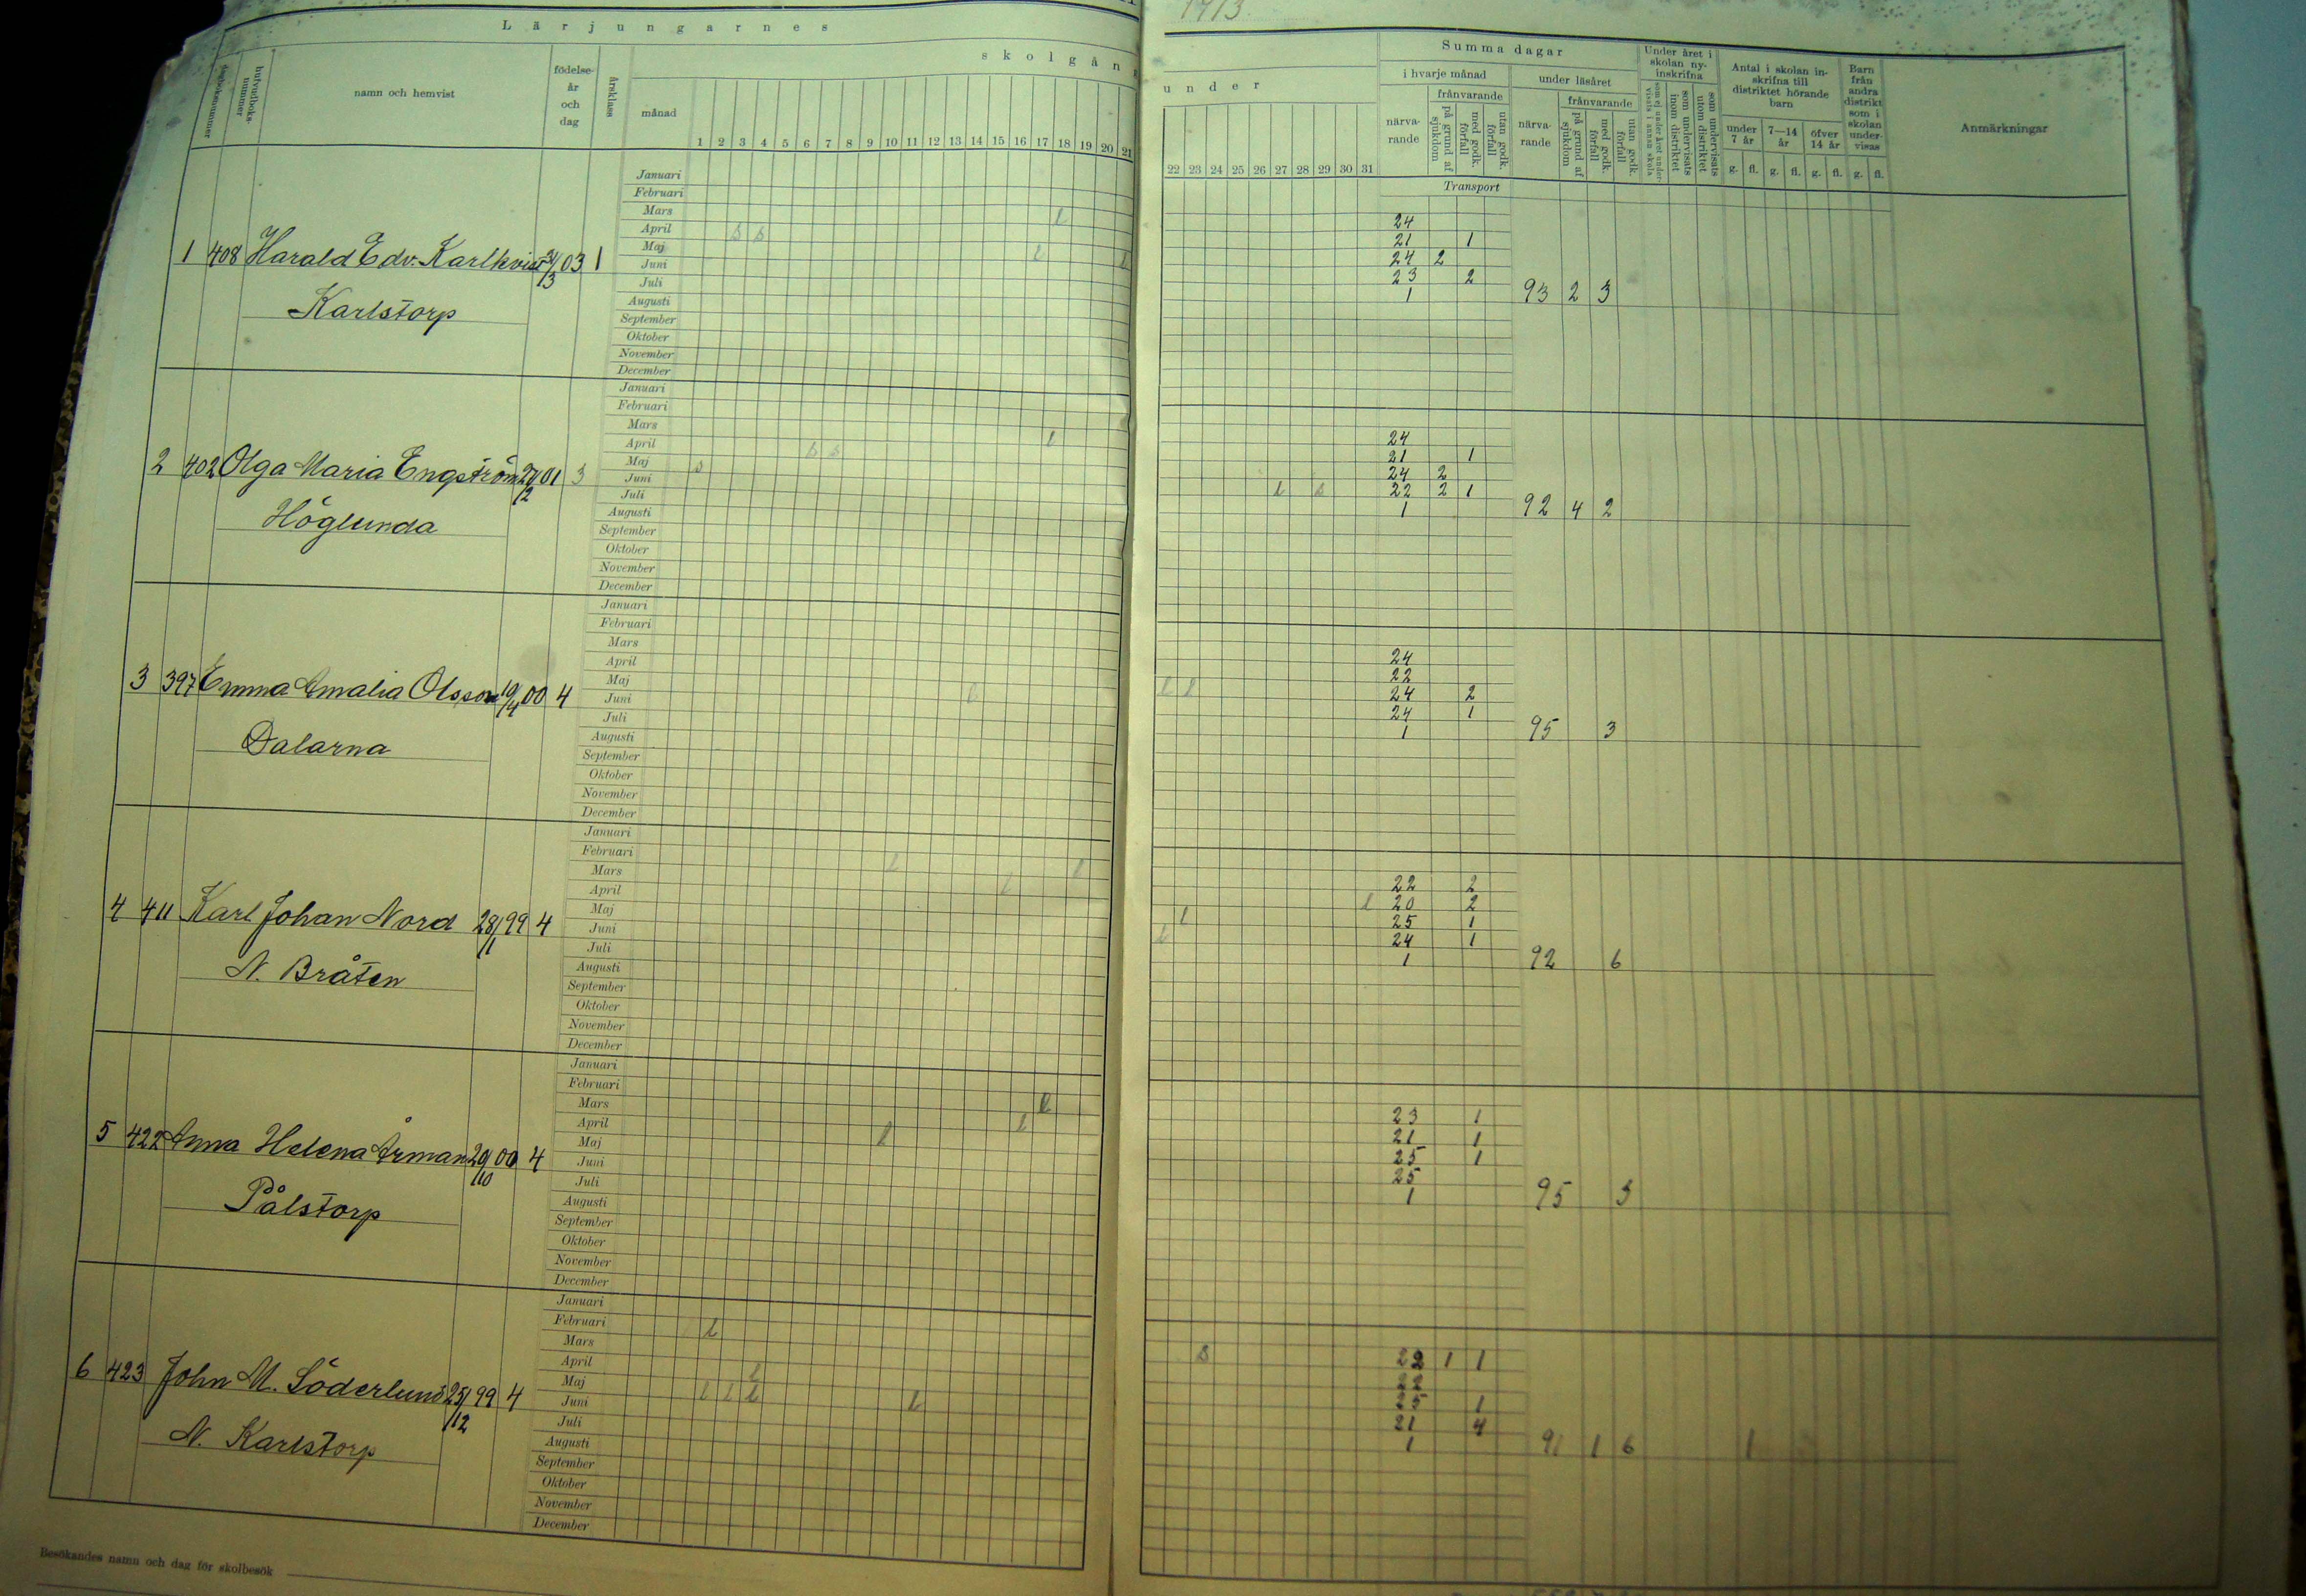 1913
Lärjungarnes
skolgång
under
dagboksnummer
hufvudboks-
nummer
namn och hemvist
födelse-
år
och
dag
årsklass
månad
1 2 3 4 5 6 7 8 9 10 11 12 13 14 15 16 17 18 19 20 21
22 23 24 25 26 27 28 29 30 31
Summa dagar
i hvarje månad
närva-
rande
frånvarande
på grund af
sjukdom
med godk.
förfall
utan godk.
förfall
under läsåret
närva-
rande
frånvarande
på grund af
sjukdom
med godk.
förfall
utan godk.
förfall
Under året i
skolan ny-
inskrifna
som ej under året under-
visats i annan skola
som undervisats
inom distriktet
som undervisats
utom distriktet
Antal i skolan in-
skrifna till
distriktet hörande
barn
under
7 år
7—14
år
öfver
14 år
g. fl. g. fl. g. fl.
Barn
från
andra
distrikt
som i
skolan
under-
visas
g. fl.
Anmärkningar
Transport
1 408 Harald Edv. Karlkvist /3 03 1
Karlstorp
Januari
Februari
Mars l 24
April s s 21 1
Maj l 24 2
Juni l 23 2
Juli 1 93 2 3
Augusti
September
Oktober
November
December
2 402 Olga Maria Engström 27/2 01 3
Höglunda
Januari
Februari
Mars 24
April l 21 1
Maj s s 24 2
Juni s l s 22 2 1
Juli 1 92 4 2
Augusti
September
Oktober
November
December
3 397 Emma Amalia Olsson 19/4 00 4
Dalarna
Januari
Februari
Mars 24
April 22
Maj l l 24 2
Juni l 24 1
Juli 1 95 3
Augusti
September
Oktober
November
December
4 411 Karl Johan Nord 28/1 99 4
N. Bråten
Januari
Februari
Mars l l 22 2
April l l 20 2
Maj l 25 1
Juni l 24 1
Juli 1 92 6
Augusti
September
Oktober
November
December
5 422 Anna Helena Årman 29/10 00 4
Pålstorp
Januari
Februari
Mars l 23 1
April l 21 1
Maj l 25 1
Juni 25
Juli 1 95 3
Augusti
September
Oktober
November
December
6 423 John M. Söderlund 25/12 99 4
N. Karlstorp
Januari
Februari
Mars l s 22 1 1
April 22
Maj l 25 1
Juni l l l l 21 4
Juli 1 91 1 6 1
Augusti
September
Oktober
November
December
Besökandes namn och dag för skolbesök